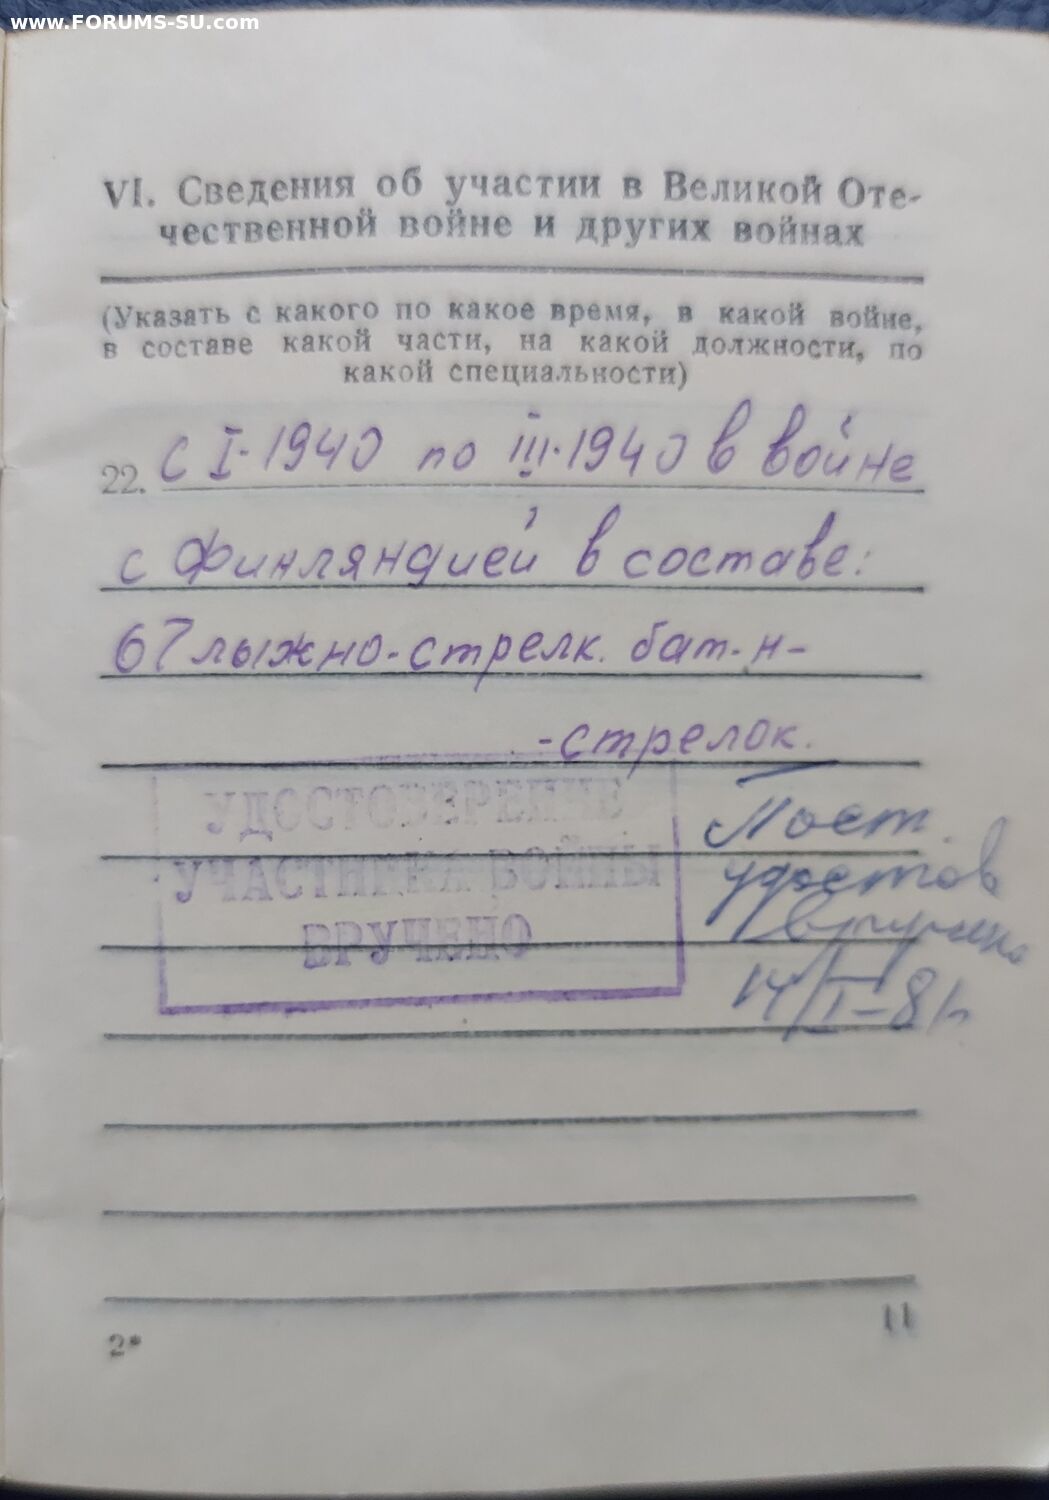 www.FORUMS-SU.com
VI. Сведения об участии в Великой Оте-
чественной войне и других войнах
(Указать с какого по какое время, в какой войне,
в составе какой части, на какой должности, по
какой специальности)
22. с I-1940 по III-1940 в войне
с Финляндией в составе:
67 лыжно-стрелк. бат-н-
-стрелок.
УДОСТОВЕРЕНИЕ
УЧАСТНИКА ВОЙНЫ
ВРУЧЕНО
удостов
вручено
14/I-81г
2*
11